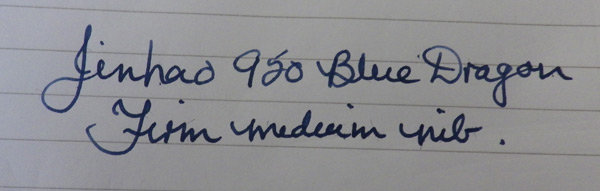 Jinhao 950 Blue Dragon
Firm medium nib.